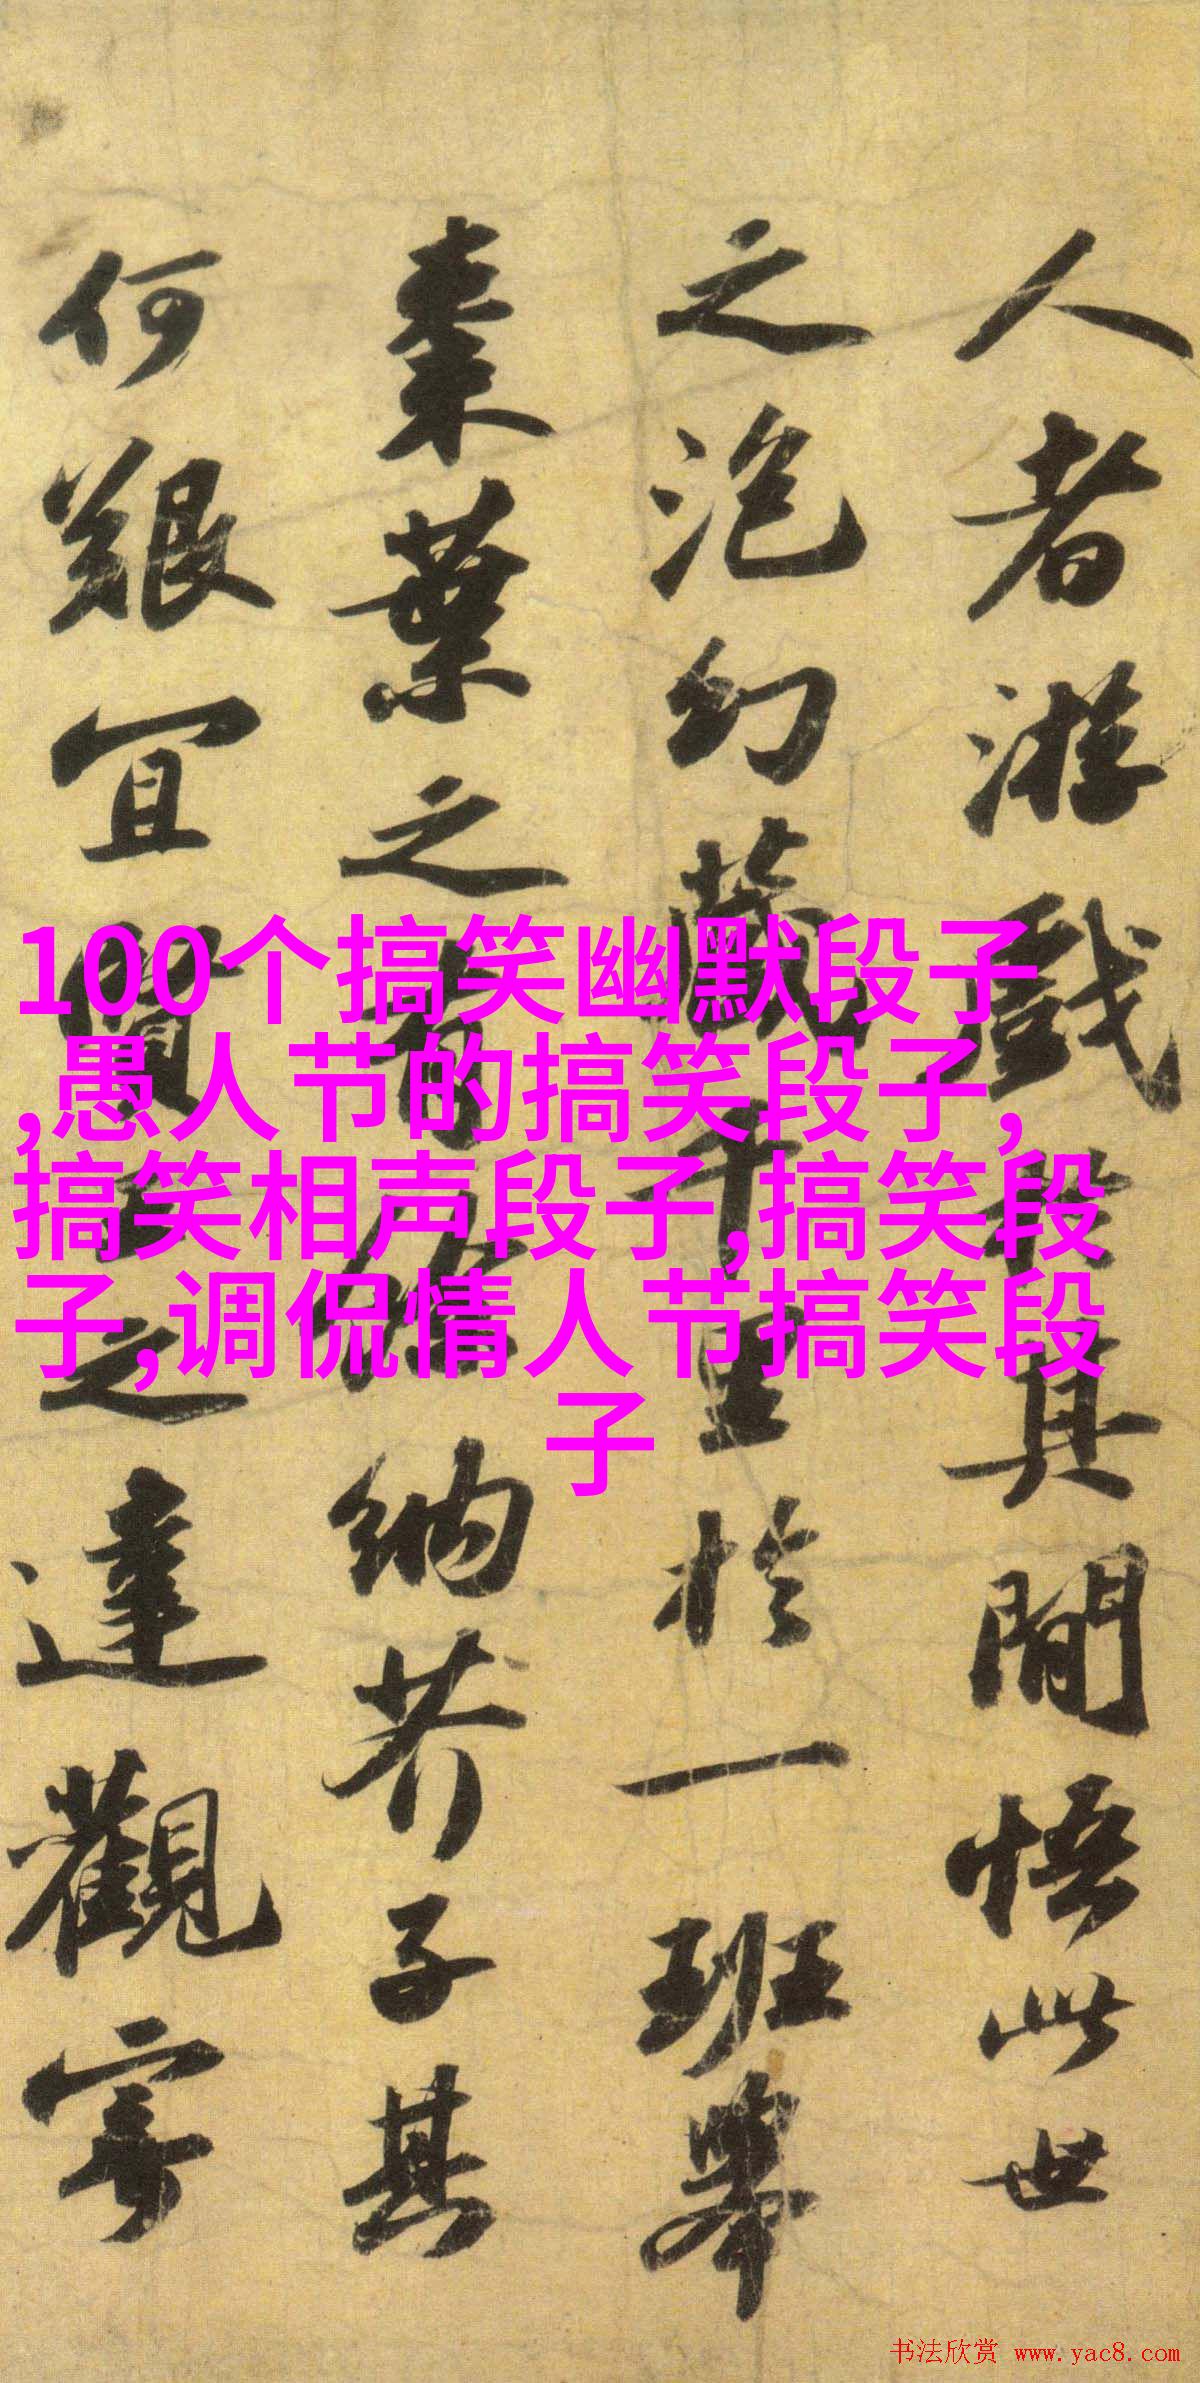 人者游戲於其間悟此世
之泡幻藏千里於一班舉
棗葉之有餘納芥子其
何艱宜賢王之達觀寄
100个搞笑幽默段子
,愚人节的搞笑段子,
搞笑相声段子,搞笑段
子,调侃情人节搞笑段
子
书法欣赏 www.yac8.com